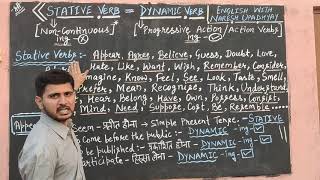 STATIVE VERB = DYNAMIC VERB
ENGLISH WITH
NARESH UPADHYAY
[Non-Continuous]
ing-
[Progressive Action/Action Verbs]
ing-
Stative Verbs:- Appear, Agree, Believe, Guess, Doubt, Love,
Hate, Like, Want, Wish, Remember, Consider,
Imagine, Know, Feel, See, Look, Taste, Smell,
Prefer, Mean, Recognise, Think, Understand,
Hear, Belong, Have, Own, Possess, Consist,
Mind, Need, Support, Cost, Be, Resemble
Seem - प्रतीत होना → Simple Present Tense:- STATIVE
Come before the public:- DYNAMIC -ing-
To be published:- प्रकाशित होना - DYNAMIC -ing-
Participate - हिस्सा लेना - DYNAMIC -ing-